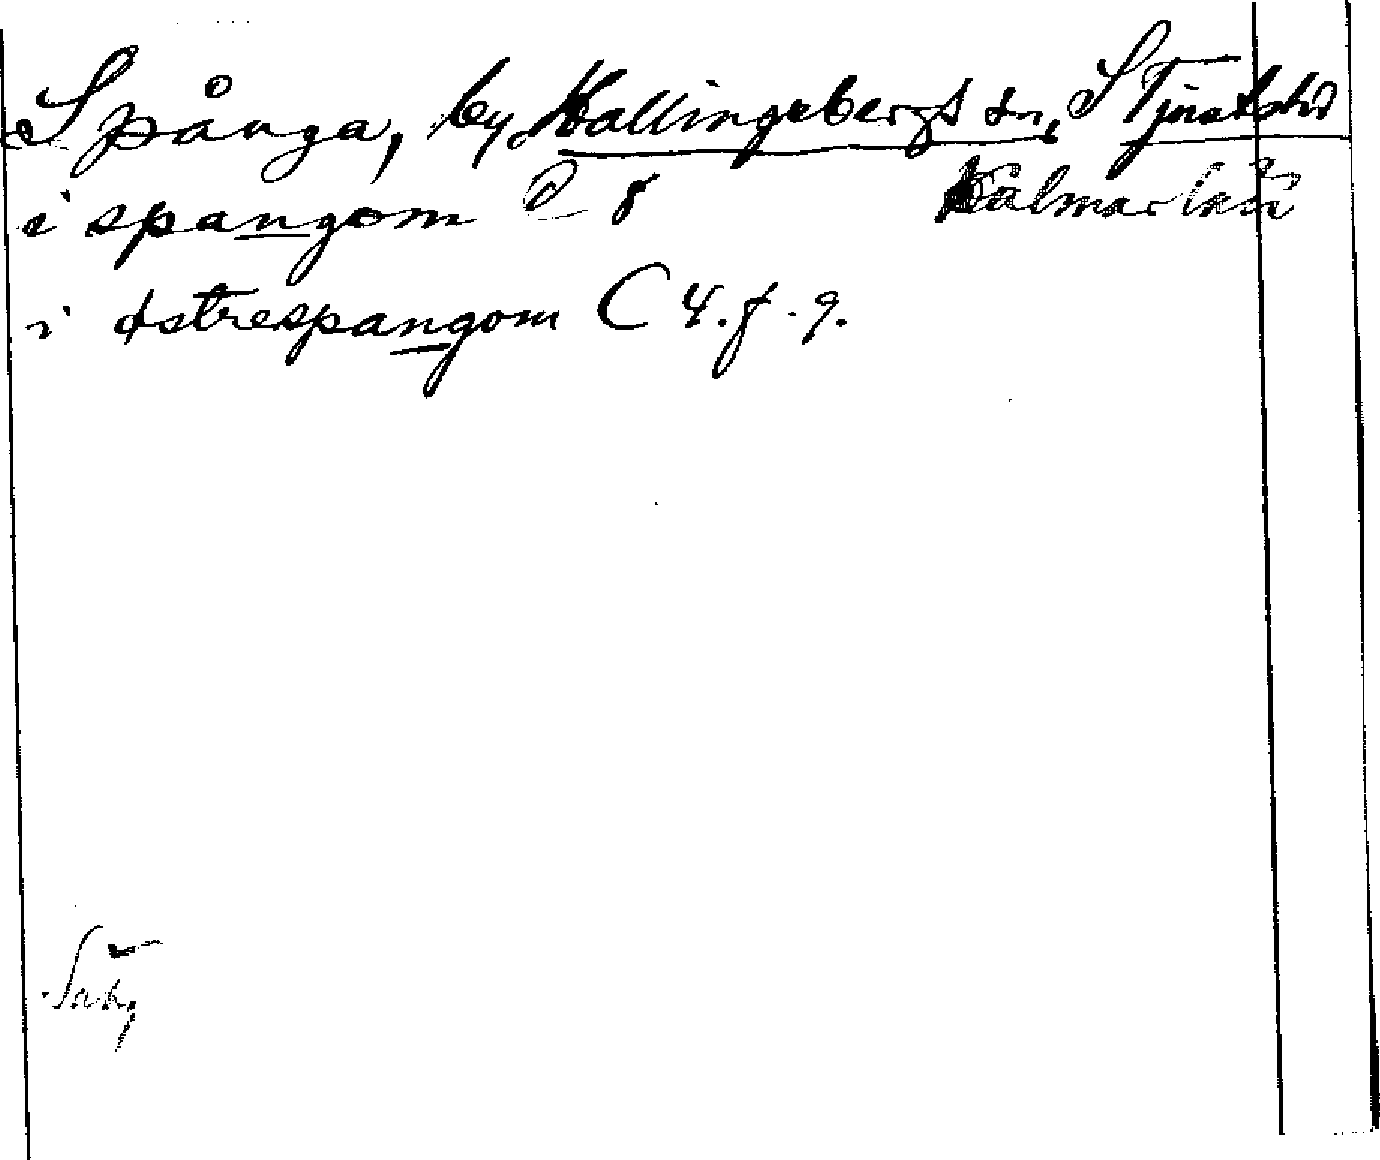 Spånga, by, Hallingebergs sn, S Tjust hd
i spangom D 8 Kalmar län
i østrespangom C 4. f. 9.